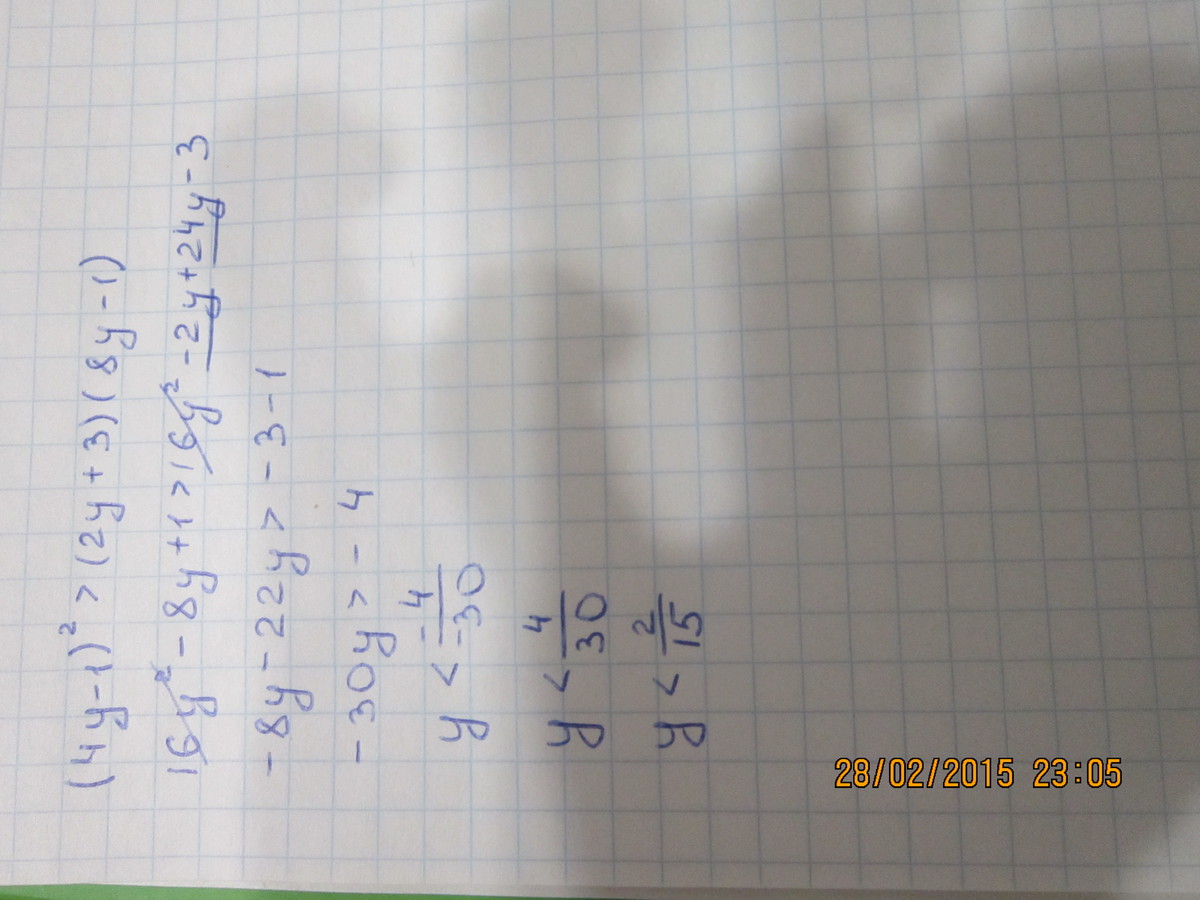 (4y-1)² > (2y+3)(8y-1)
16y² - 8y + 1 > 16y² - 2y + 24y - 3
-8y - 22y > -3 - 1
-30y > -4
y < -4/-30
y < 4/30
y < 2/15
28/02/2015 23:05